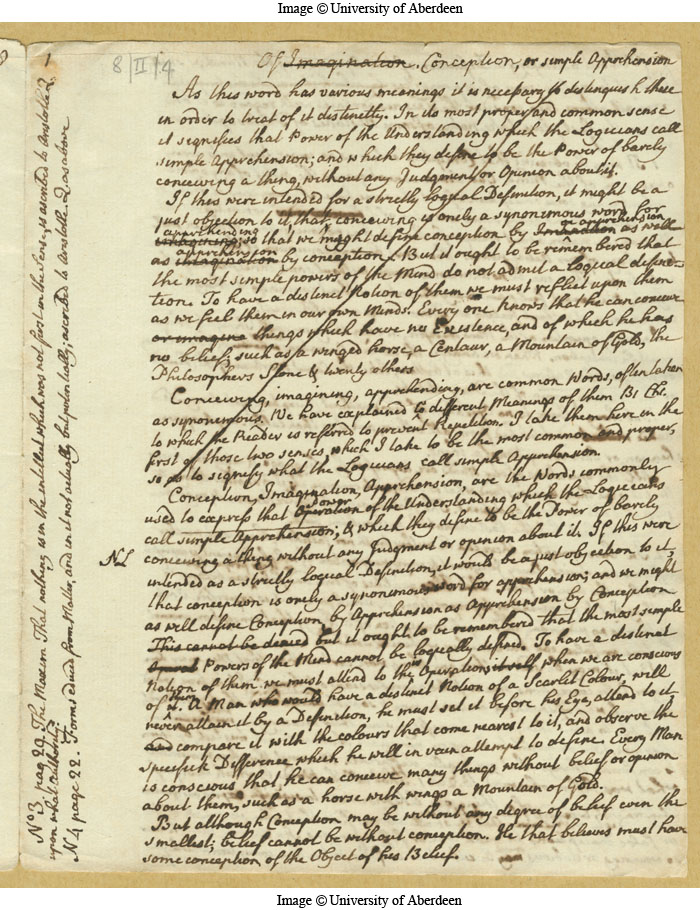 Image © University of Aberdeen
8/II/4
Of Imagination. Conception, or simple Apprehension
As this word has various meanings it is necessary to distinguish these
in order to treat of it distinctly. In its most proper and common sense
it signifies that Power of the Understanding which the Logicians call
simple Apprehension; and which they define to be the Power of barely
conceiving a thing, without any Judgment or Opinion about it.
If this were intended for a strictly logical Definition, it might be a
just objection to it, that conceiving is onely a synonimous word for
apprehending or apprehension
imagining; so that we might define conception by as well
apprehension
as imagination by conception. But it ought to be remembered that
the most simple powers of the Mind do not admit a logical defini-
tion. To have a distinct Notion of them we must reflect upon them
as we feel them in our own Minds. Every one knows that he can conceive
or imagine things which have no Existence, and of which he has
no belief, such as a winged horse, a Centaur, a Mountain of Gold, the
Philosophers Stone & twenty others
Conceiving, imagining, apprehending, are common Words, often taken
as synonimous. We have explained to different Meanings of them B1 Ch1.
to which the Reader is referred to prevent Repetition. I take them here in the
first of those two senses, which I take to be the most common and proper,
so as to signify what the Logicians call simple Apprehension.
Conception, Imagination, Apprehension, are the Words commonly
Power
used to express that Operation of the Understanding which the Logicians
call simple Apprehension; & which they define to be the Power of barely
conceiving a thing without any Judgment or opinion about it. If this were
intended as a strictly logical Definition, it would be a just objection to it,
that conception is onely a synonimous word for apprehension; and we might
as well define Conception by Apprehension as Apprehension by Conception
This cannot be denied but it ought to be remembered that the most simple
Powers of the Mind cannot be logically defined. To have a distinct
Notion of them we must attend to the Operation itself when we are conscious
of them. A Man who would have a distinct Notion of a Scarlet Colour, will
never attain it by a Definition, he must set it before his Eye, attend to it
and compare it with the colours that come nearest to it, and observe the
specifick Difference which he will in vain attempt to define. Every Man
is conscious that he can conceive many things without belief or opinion
about them, such as a horse with wings a Mountain of Gold.
But although Conception may be without any degree of belief even the
smallest; belief cannot be without conception. He that believes must have
some conception of the Object of his Belief.
No 3 pag 20. The Maxim That nothing is in the intellect which was not first in the Sense, is ascribed to Aristotle.
upon what authority?
N 4 page 22. Forms educed from Matter, and in it not actually but potentially; ascribed to Aristotle. as above
Image © University of Aberdeen